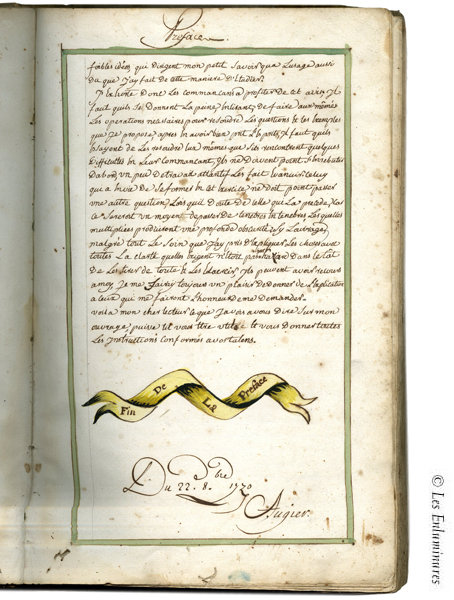 Preface
foibles idées, qui dirigent mon petit Savoir qua Lusage aussi
du que J'ay fait de cette maniere d'Etudier.
J'Exhorte donc Les commancans a profiter de cet avis, Il
faut quils Se Donnent La peine En lisant, de faire eux mêmes
Les operations necessaires pour resoudre Les questions Et les Exemples
que Je propose, apres En avoir bien prit L'Esprit, Il faut quils
Essayent de Les resoudre Eux mêmes, que Sils rencontrent quelques
difficultes En Leur commancant, ils ne Doivent point
Dabord, un peu de travail attentif Les fait Evanouir, Celuy
qui a Envie de Se former En cet Exercice ne doit point passer
une autre question Lors quil doute de celle qui La precede, Car
ce Seroient un moyent de passer de tenebres En tenebres Les quelles
multipliees produiroit une profonde obscurité, Sy Louvrage,
malgré tout Le Soin que J'ay pris d'Expliquer Les choses avec
toutes La clarté quelles Exigent n'étoit pas dans Le Cas
De Les tirer de toute Les ils peuvent avoir recours
a moy, Je me fairay toujours un plaisir de donner de L'Explication
a Ceux qui me fairont L'honneur de me demander.
voila mon cher Lecteur ce que J'avois a vous Dire Sur mon
ouvrage, puisse til vous Etre utile Et vous Donner toutes
Les Instructions conformes a vos talens.
Fin De La Preface
Du 22. 8.bre 1770
Augier.
© Les Enluminures